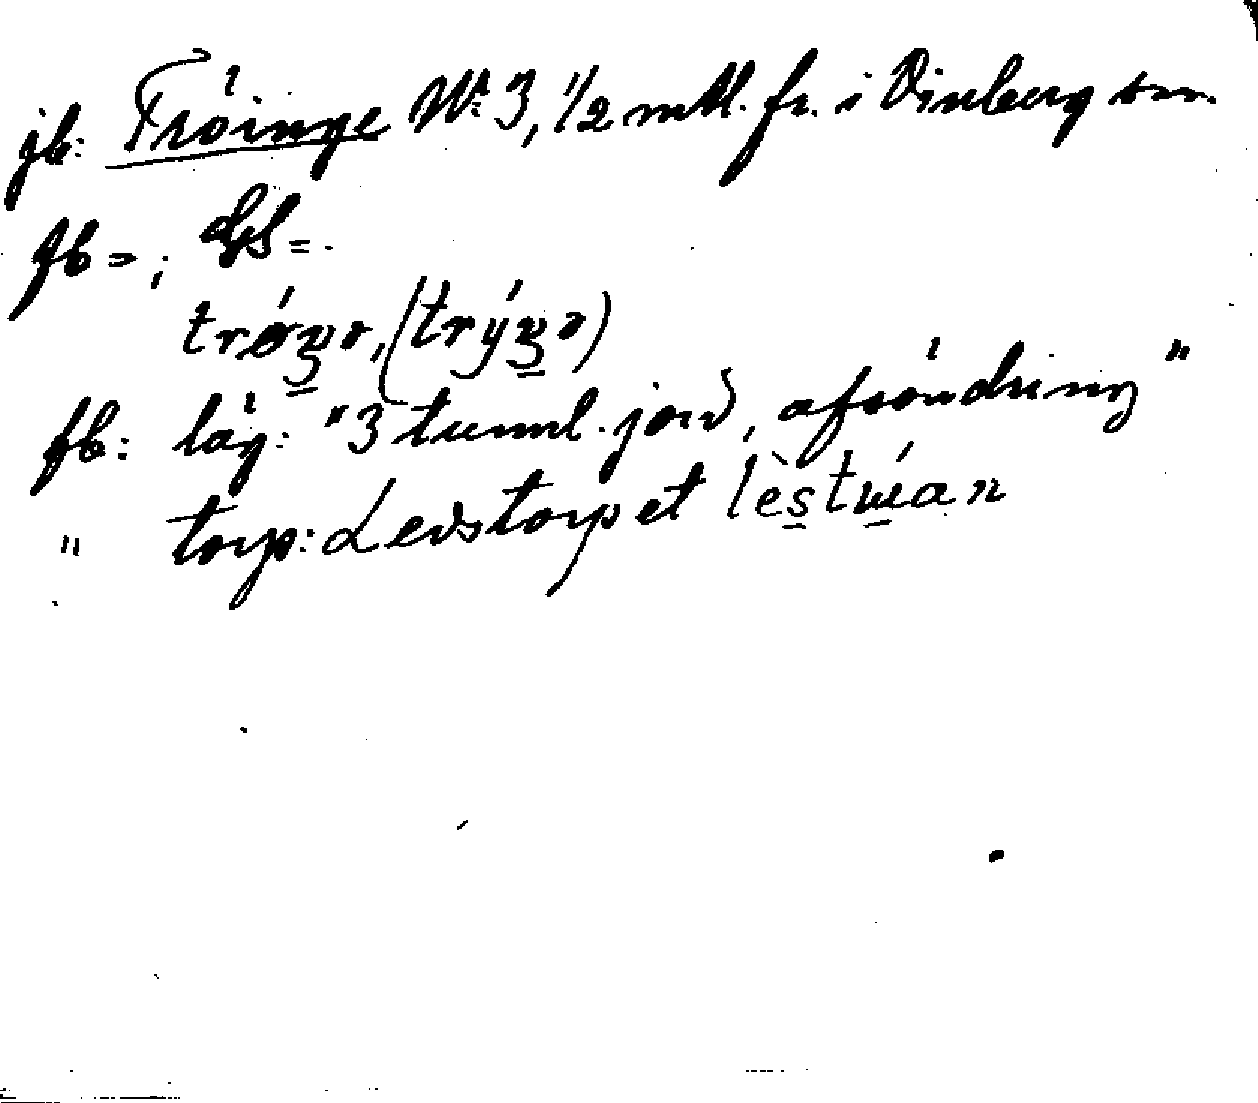 jb: Tröinge Nr: 3, 1/2 mtl. fr. i Vinberg sn.
fb =; GS =
trǿʒə, (trýʒə)
fb: läg: "3 tunnl. jord, afsöndring"
" torp: Ledstorpet